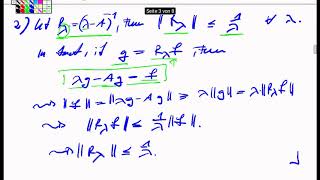 Seite 3 von 8
2) Let R_λ = (λ-A)^{-1}, then ‖R_λ‖ ≤ 1/λ ∀ λ.
In fact, if g = R_λ f, then
λg - Ag = f
⇝ ‖f‖ = ‖λg - Ag‖ ≥ λ‖g‖ = λ‖R_λ f‖
⇝ ‖R_λ f‖ ≤ 1/λ ‖f‖.
⇝ ‖R_λ‖ ≤ 1/λ.